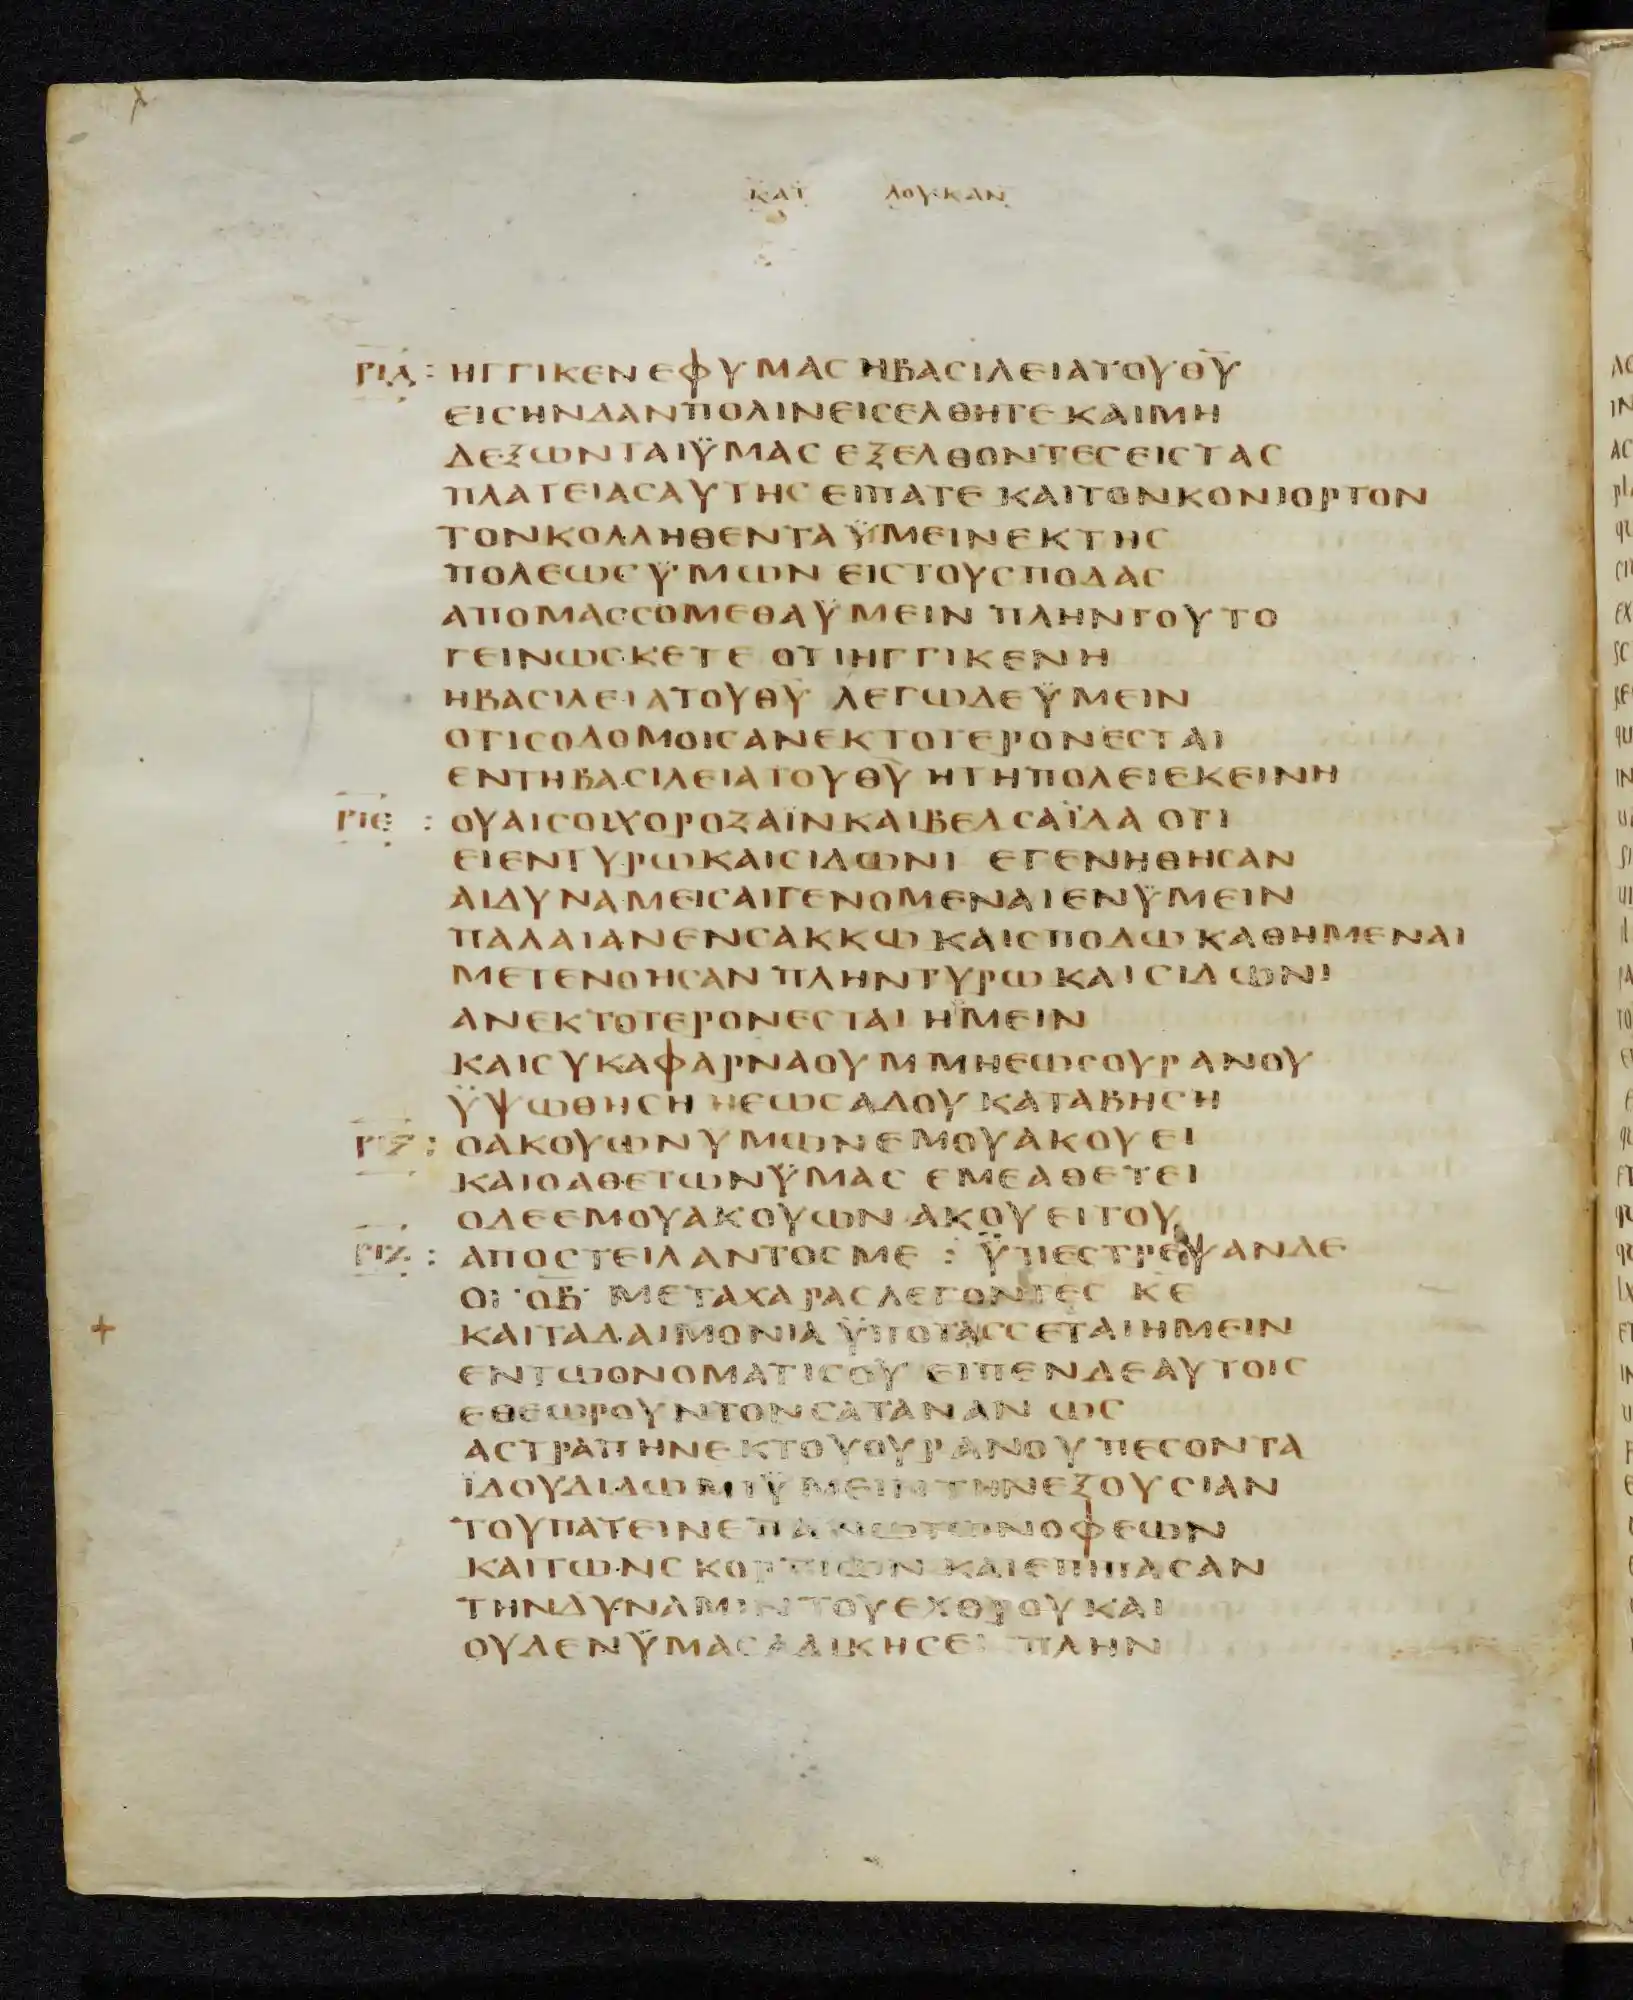 ΚΑΤ ΛΟΥΚΑΝ
ΡΙΔ : ΗΓΓΙΚΕΝ ΕΦ ΥΜΑΣ Η ΒΑΣΙΛΕΙΑ ΤΟΥ ΘΥ
ΕΙΣ ΗΝ ΔΑΝ ΠΟΛΙΝ ΕΙΣΕΛΘΗΤΕ ΚΑΙ ΜΗ
ΔΕΞΩΝΤΑΙ ΫΜΑΣ ΕΞΕΛΘΟΝΤΕΣ ΕΙΣ ΤΑΣ
ΠΛΑΤΕΙΑΣ ΑΥΤΗΣ ΕΙΠΑΤΕ ΚΑΙ ΤΟΝ ΚΟΝΙΟΡΤΟΝ
ΤΟΝ ΚΟΛΛΗΘΕΝΤΑ ΫΜΕΙΝ ΕΚ ΤΗΣ
ΠΟΛΕΩΣ ΥΜΩΝ ΕΙΣ ΤΟΥΣ ΠΟΔΑΣ
ΑΠΟΜΑΣΣΟΜΕΘΑ ΫΜΕΙΝ ΠΛΗΝ ΤΟΥΤΟ
ΓΕΙΝΩΣΚΕΤΕ ΟΤΙ ΗΓΓΙΚΕΝ Η
Η ΒΑΣΙΛΕΙΑ ΤΟΥ ΘΥ ΛΕΓΩ ΔΕ ΫΜΕΙΝ
ΟΤΙ ΣΟΔΟΜΟΙΣ ΑΝΕΚΤΟΤΕΡΟΝ ΕΣΤΑΙ
ΕΝ ΤΗ ΒΑΣΙΛΕΙΑ ΤΟΥ ΘΥ Η ΤΗ ΠΟΛΕΙ ΕΚΕΙΝΗ
ΡΙΕ : ΟΥΑΙ ΣΟΙ ΧΟΡΟΖΑΪΝ ΚΑΙ ΒΕΔΣΑΪΔΑ ΟΤΙ
ΕΙ ΕΝ ΤΥΡΩ ΚΑΙ ΣΙΔΩΝΙ ΕΓΕΝΗΘΗΣΑΝ
ΑΙ ΔΥΝΑΜΕΙΣ ΑΙ ΓΕΝΟΜΕΝΑΙ ΕΝ ΫΜΕΙΝ
ΠΑΛΑΙ ΑΝ ΕΝ ΣΑΚΚΩ ΚΑΙ ΣΠΟΔΩ ΚΑΘΗΜΕΝΑΙ
ΜΕΤΕΝΟΗΣΑΝ ΠΛΗΝ ΤΥΡΩ ΚΑΙ ΣΙΔΩΝΙ
ΑΝΕΚΤΟΤΕΡΟΝ ΕΣΤΑΙ Η ΜΕΙΝ
ΚΑΙ ΣΥ ΚΑΦΑΡΝΑΟΥΜ ΜΗ ΕΩΣ ΟΥΡΑΝΟΥ
ΫΨΩΘΗΣΗ Η ΕΩΣ ΑΔΟΥ ΚΑΤΑΒΗΣΗ
ΡΙϚ : Ο ΑΚΟΥΩΝ ΥΜΩΝ ΕΜΟΥ ΑΚΟΥΕΙ
ΚΑΙ Ο ΑΘΕΤΩΝ ΫΜΑΣ ΕΜΕ ΑΘΕΤΕΙ
Ο ΔΕ ΕΜΟΥ ΑΚΟΥΩΝ ΑΚΟΥΕΙ ΤΟΥ
ΡΙΖ : ΑΠΟΣΤΕΙΛΑΝΤΟΣ ΜΕ : ΫΠΕΣΤΡΕΨΑΝ ΔΕ
ΟΙ ΟΒ ΜΕΤΑ ΧΑΡΑΣ ΛΕΓΟΝΤΕΣ ΚΕ
ΚΑΙ ΤΑ ΔΑΙΜΟΝΙΑ ΫΠΟΤΑΣΣΕΤΑΙ ΗΜΕΙΝ
ΕΝ ΤΩ ΟΝΟΜΑΤΙ ΣΟΥ ΕΙΠΕΝ ΔΕ ΑΥΤΟΙΣ
ΕΘΕΩΡΟΥΝ ΤΟΝ ΣΑΤΑΝΑΝ ΩΣ
ΑΣΤΡΑΠΗΝ ΕΚ ΤΟΥ ΟΥΡΑΝΟΥ ΠΕΣΟΝΤΑ
ΪΔΟΥ ΔΙΔΩΜΙ ΫΜΕΙΝ ΤΗΝ ΕΞΟΥΣΙΑΝ
ΤΟΥ ΠΑΤΕΙΝ ΕΠΑΝΩ ΤΩΝ ΟΦΕΩΝ
ΚΑΙ ΤΩΝ ΣΚΟΡΠΙΩΝ ΚΑΙ ΕΠΙ ΠΑΣΑΝ
ΤΗΝ ΔΥΝΑΜΙΝ ΤΟΥ ΕΧΘΡΟΥ ΚΑΙ
ΟΥΔΕΝ ΫΜΑΣ ΑΔΙΚΗΣΕΙ ΠΛΗΝ